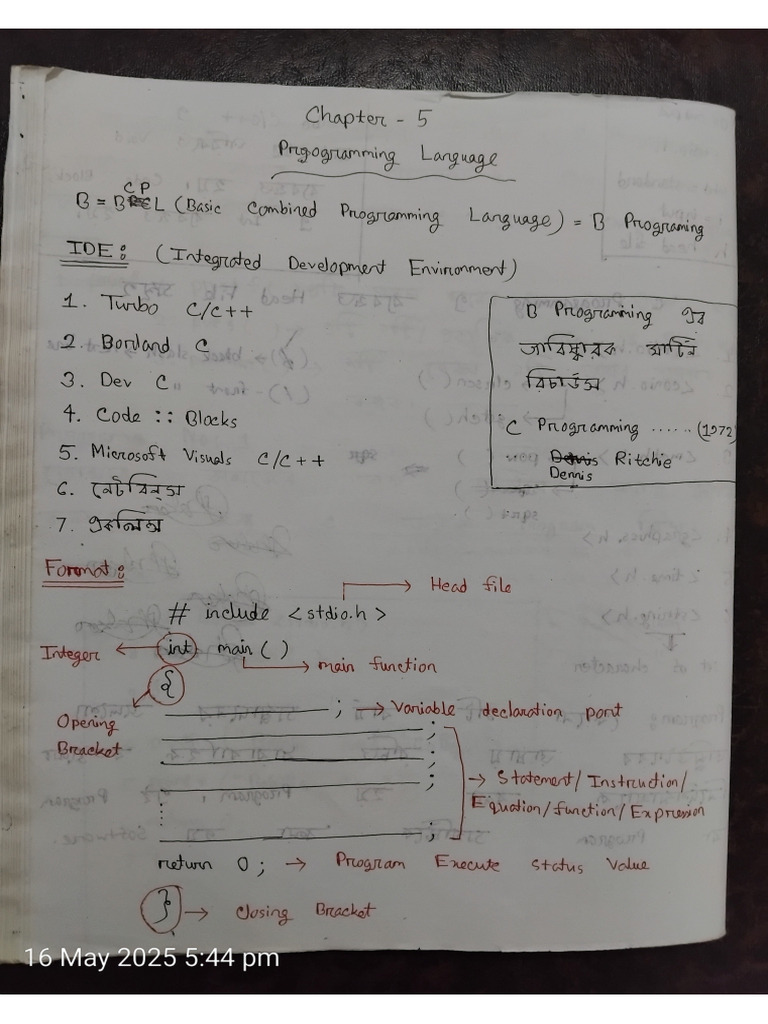 Chapter - 5
Prgogramming Language
B = BCPL (Basic Combined Programming Language) = B Programing
IDE: (Integrated Development Environment)
1. Turbo C/C++
2. Borland C
3. Dev C
4. Code :: Blocks
5. Microsoft Visuals C/C++
6. নেটবিন্স
7. একলিপ্স
B Programming এর
আবিষ্কারক মার্টিন
রিচার্ডস
C Programming ...... (1972)
Ritchie
Dennis
Format:
Head file
# include <stdio.h>
Integer int main ( )
main function
{
; → Variable declaration part
Opening
Bracket
;
;
;
→ Statement/Instruction/
Equation/function/Expression
;
return 0 ; → Program Execute Status Value
} → Closing Bracket
16 May 2025 5:44 pm